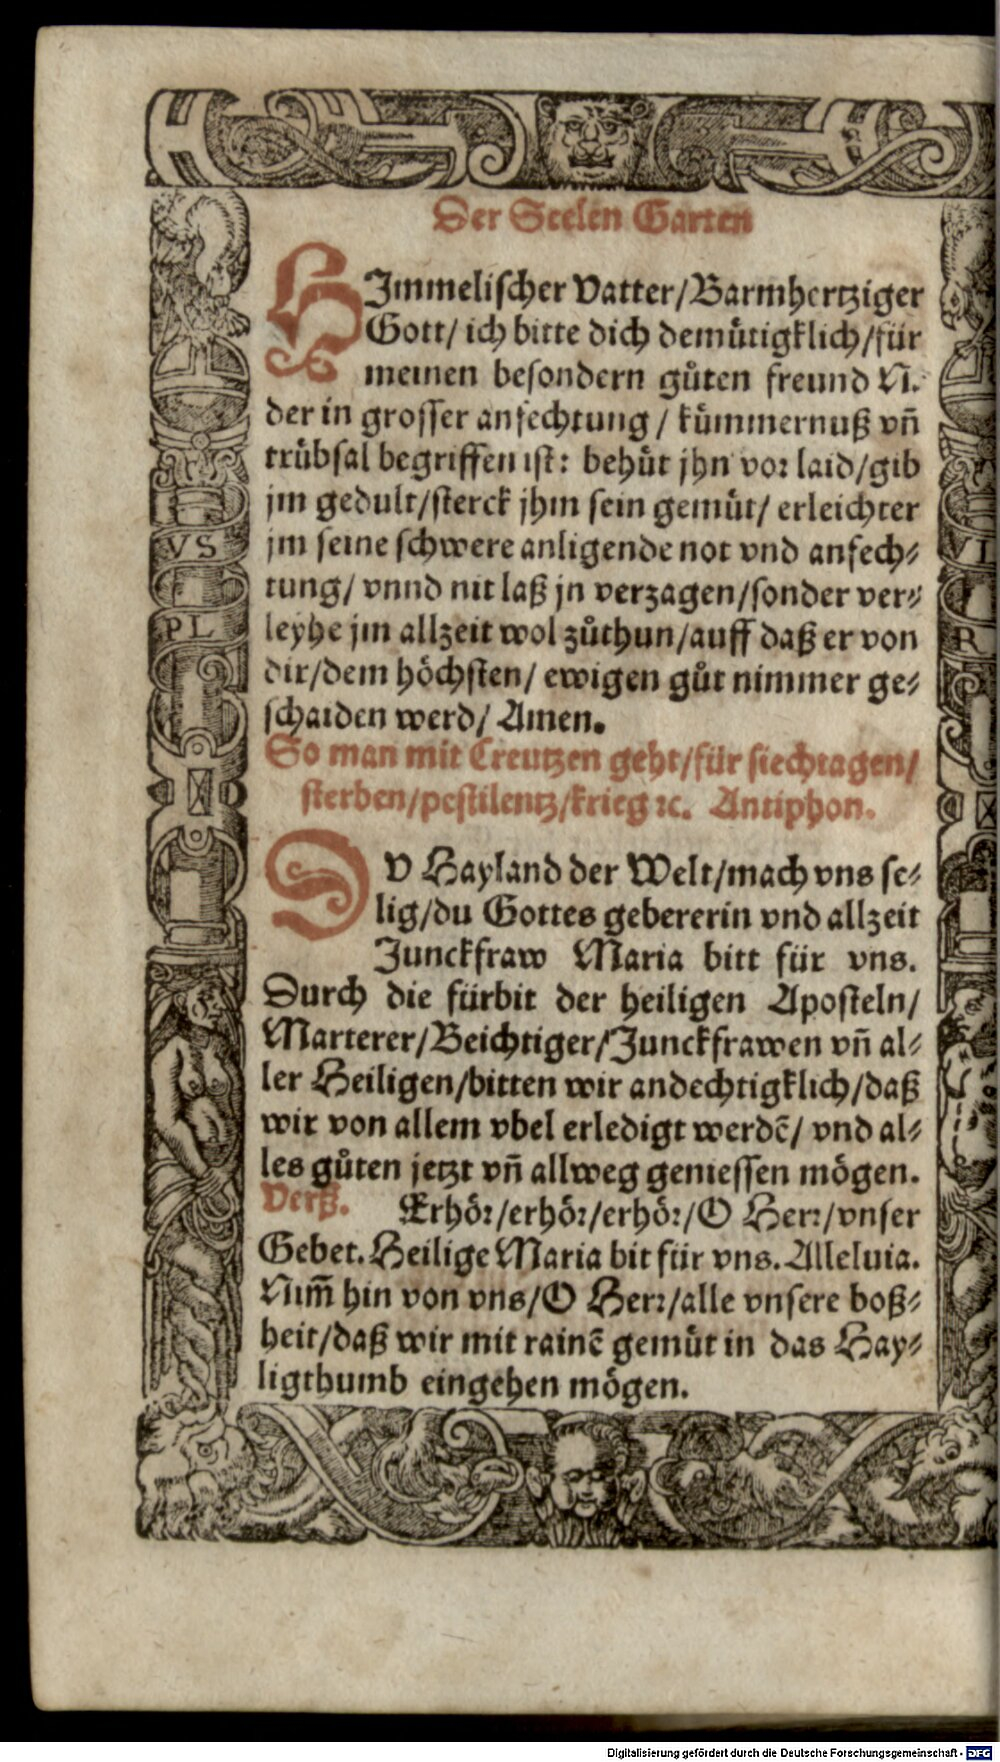 Der Seelen Garten
HImmelischer Vatter/Barmhertziger
Gott/ ich bitte dich demütigklich/für
meinen besondern gůten freund N.
der in grosser anfechtung / kümmernuß vñ
trübsal begriffen ist: behüt jhn vor laid/gib
jm gedult/sterck jhm sein gemüt/ erleichter
jm seine schwere anligende not vnd anfech⸗
tung/ vnnd nit laß jn verzagen/sonder ver⸗
leyhe jm allzeit wol zůthun/auff daß er von
dir/dem höchsten/ ewigen gůt nimmer ge⸗
schaiden werd/ Amen.
So man mit Creutzen geht/für siechtagen/
sterben/pestilentz/krieg ꝛc. Antiphon.
DV Hayland der Welt/mach vns se⸗
lig/du Gottes gebererin vnd allzeit
Junckfraw Maria bitt für vns.
Durch die fürbit der heiligen Aposteln/
Marterer/Beichtiger/Junckfrawen vñ al⸗
ler Heiligen/bitten wir andechtigklich/daß
wir von allem vbel erledigt werdẽ/ vnd al⸗
les gůten jetzt vñ allweg geniessen mögen.
Verß. Erhör/erhör/erhör/O Herr/vnser
Gebet. Heilige Maria bit für vns. Alleluia.
Nim̃ hin von vns/O Herr/alle vnsere boß⸗
heit/daß wir mit rainẽ gemüt in das Hay⸗
ligthumb eingehen mögen.
VS
PL
VI
R
Digitalisierung gefördert durch die Deutsche Forschungsgemeinschaft - DFG